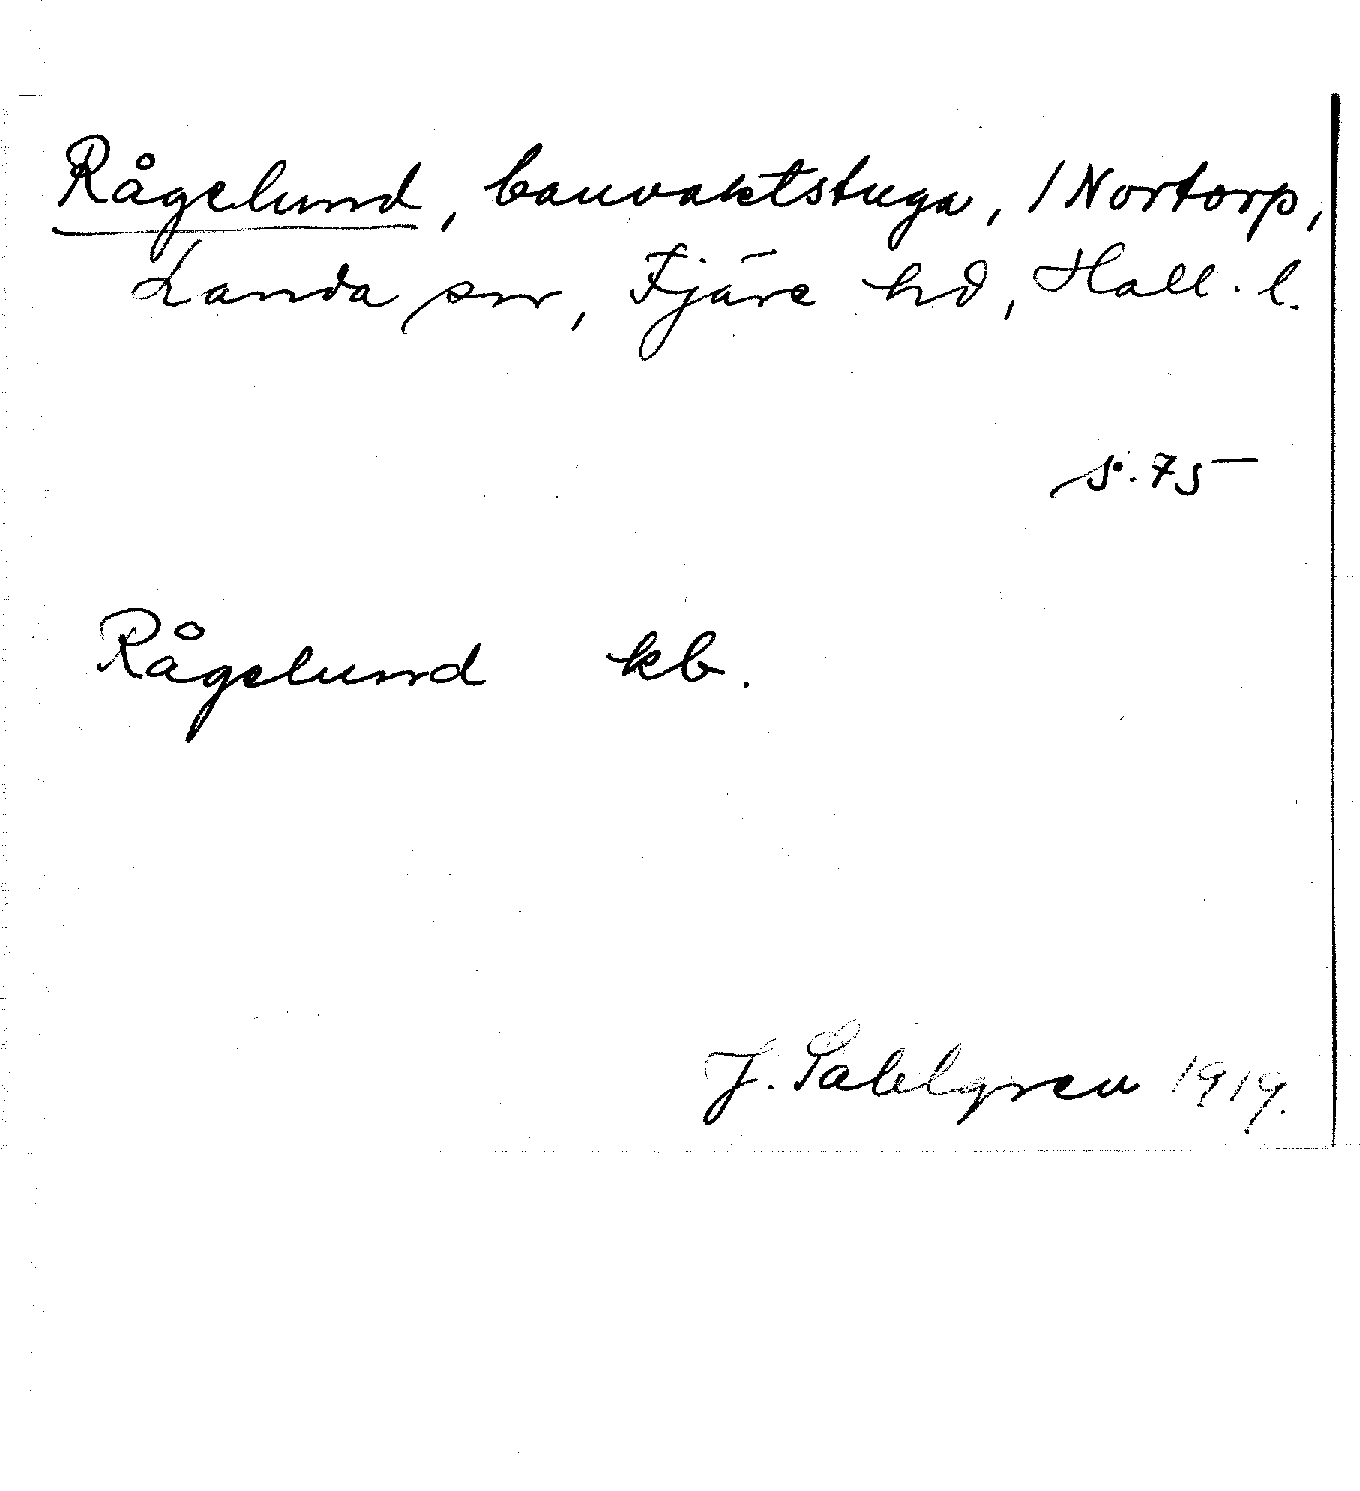 Rågelund, banvaktstuga, 1 Nortorp,
Landa sn, Fjäre hd, Hall. l.
s. 75
Rågelund kb.
J. Sahlgren 1919.